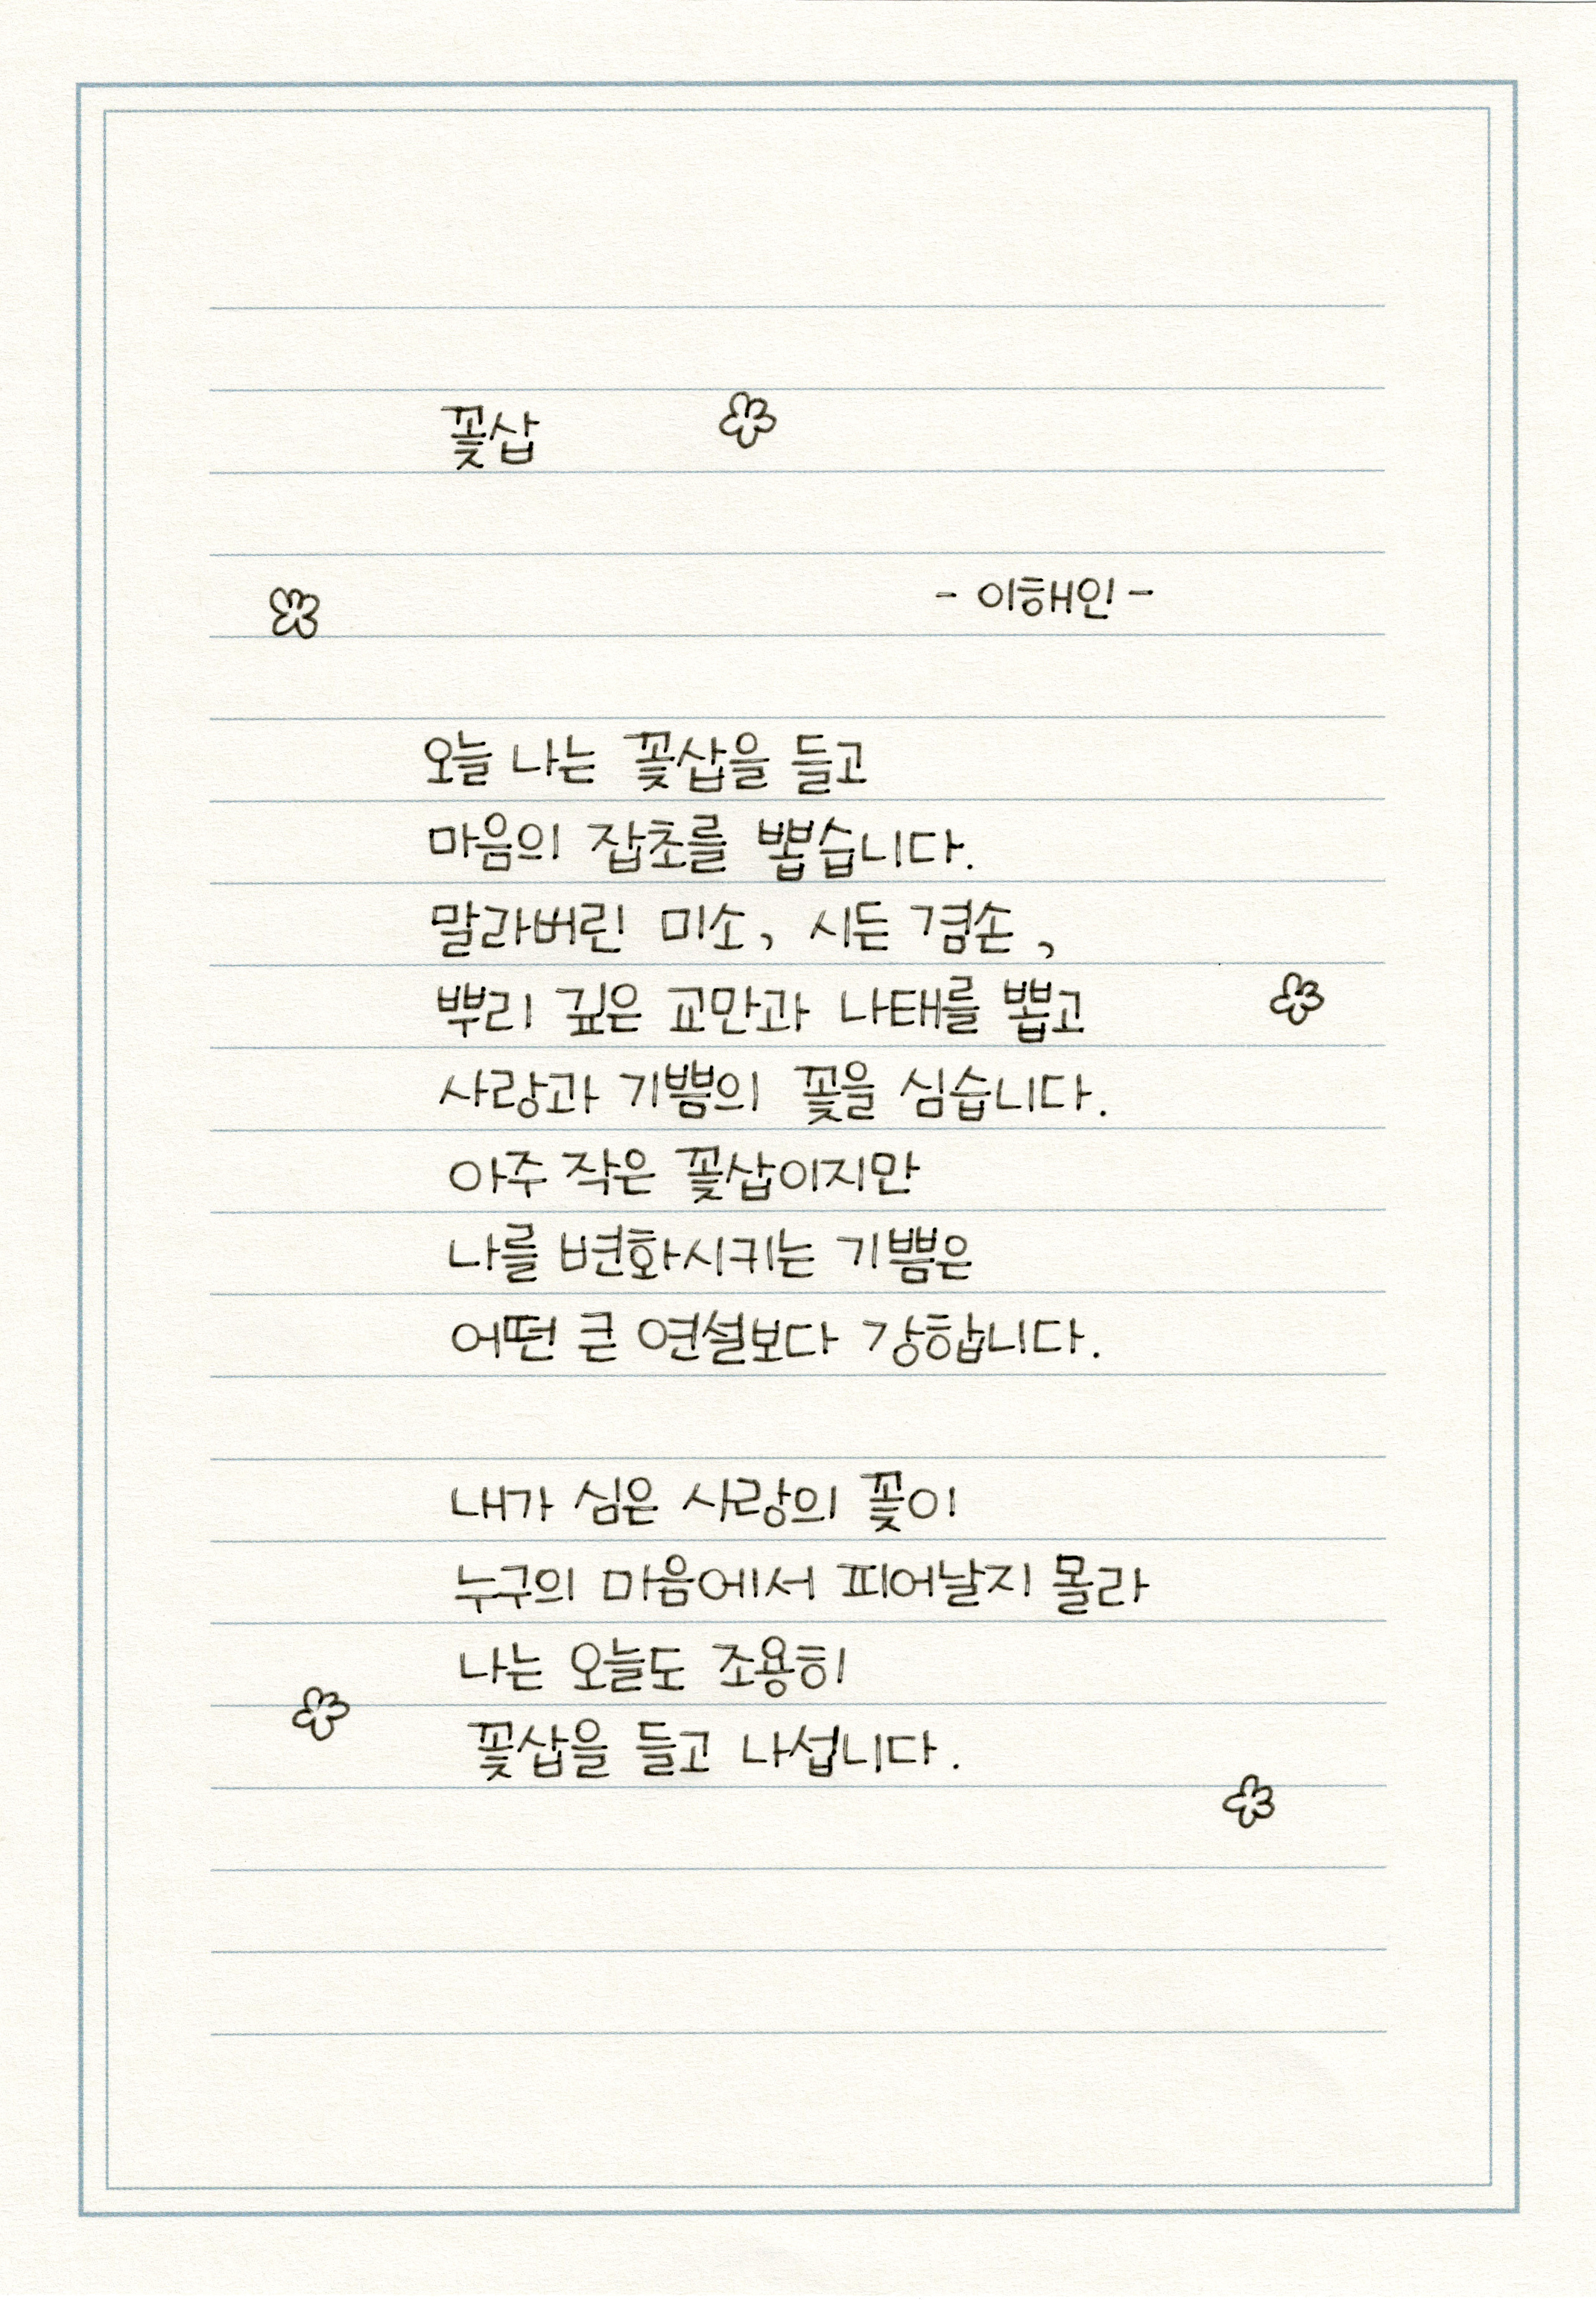 꽃삽
- 이해인 -
오늘 나는 꽃삽을 들고
마음의 잡초를 뽑습니다.
말라버린 미소, 시든 겸손,
뿌리 깊은 교만과 나태를 뽑고
사랑과 기쁨의 꽃을 심습니다.
아주 작은 꽃삽이지만
나를 변화시키는 기쁨은
어떤 큰 연설보다 강합니다.
내가 심은 사랑의 꽃이
누구의 마음에서 피어날지 몰라
나는 오늘도 조용히
꽃삽을 들고 나섭니다.